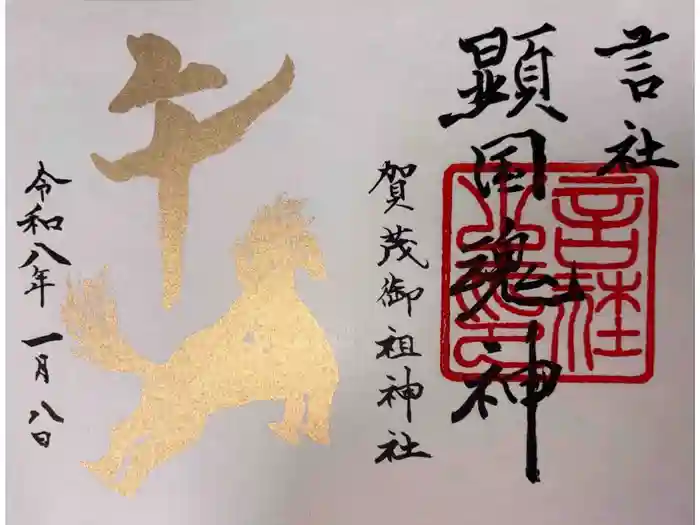 言社
顕国魂神
賀茂御祖神社
午
令和八年 一月八日